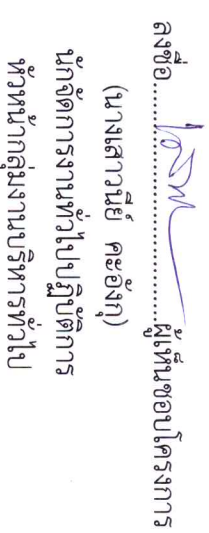 ลงชื่อ.......................ผู้เห็นชอบโครงการ
(นางเสาวนีย์ คะอังกุ)
นักจัดการงานทั่วไปปฏิบัติการ
หัวหน้ากลุ่มงานบริหารทั่วไป